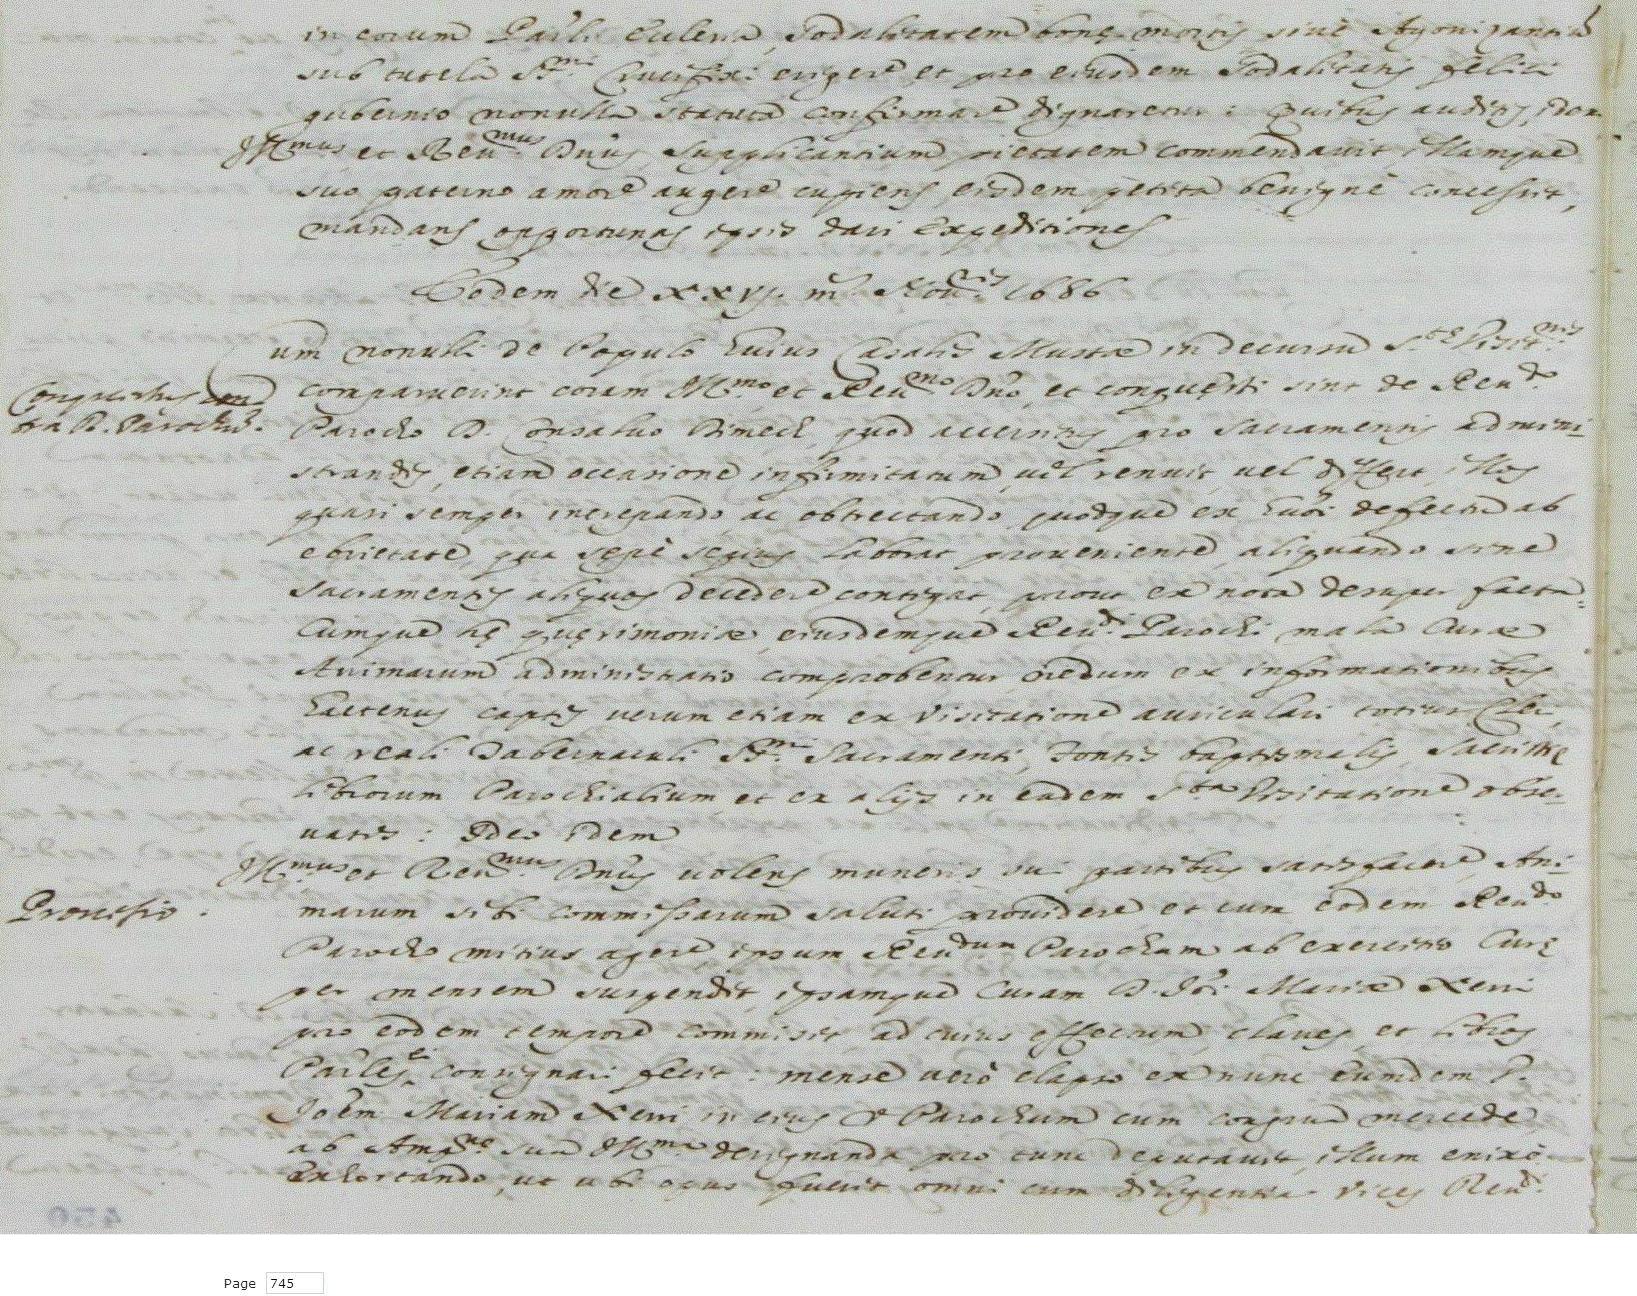 in eorum Par.li Ecclesia, Sodalitatem bonę mortis sive Agonizantiũ
sub tutela S.mi Crucifixi erigere et pro eiusdem Sodalitatis felici
gubernio nonulla statuta confirmare dignaretur: Quibus auditis, idem
Ill.mus et Reu.mus Dnus, supplicantium pietatem commendauit, illamque
suo paterno amore augere cupiens, eisdem petita benigne concessit,
mandans opportunas ipsis dari expeditiones
Eodem die xxvj. m. Nou.ris 1686
Cum nonulli de Populo huius Casalis Mustæ in decursu S.tę Visit.nis
Conquestus con
comparuerint coram Ill.mo et Reu.mo Dno, et conquęsti sint de Reu.do
tra R. Parochũ.
Parocho D. Consaluo Dimech, quod accersitus pro Sacramentis admini-
strandis, etiam occasione infirmitatum, uel renuit, uel differt, illos
quasi semper increpando, ac obtrectando, quodque ex defectu ab
ebrietate, qua sępe sępius laborat, proueniente, aliquando sine
Sacramentis aliquos decedere contigat, prout ex nota desuper facta.
Cumque hę quęrimoniæ, eiusdemque Reu.di Parochi mala Curæ
Animarum administratio comprobentur, nedum ex informationibus
hactenus captis uerum etiam ex Visitatione auriculari totius Cleri,
ac reali Tabernaculi SS.mi Sacramenti, Fontis baptismalis, Sacristię
librorum Parochialium, et ex alijs in eadem S.ta Visitatione obser-
uatis: Ideo idem
Ill.mus et Reu.mus Dnus uolens muneris sui partibus satisfacere, Ani-
Prouisio.
marum sibi commissarum saluti prouidere, et cum eodem Reu.do
Parocho mitius agere, ipsum Reu.dum Parochum ab exercitio Curę
per mensem suspendit, ipsamque Curam D. Joi Mariæ Xerri
pro eodem tempore commisit, ad cuius effectum, claues, et libros
Par.les ei consignari fecit: mense uerò elapso ex nunc eumdem D.
Joem Mariam Xerri in eius Parochum cum congrua mercede
ab Amp.ne sua Ill.ma designanda pro tunc deputauit, illum enixè
exhortando, ut ubi opus fuerit omni cum diligentia vices Reu.di
450
Page 745